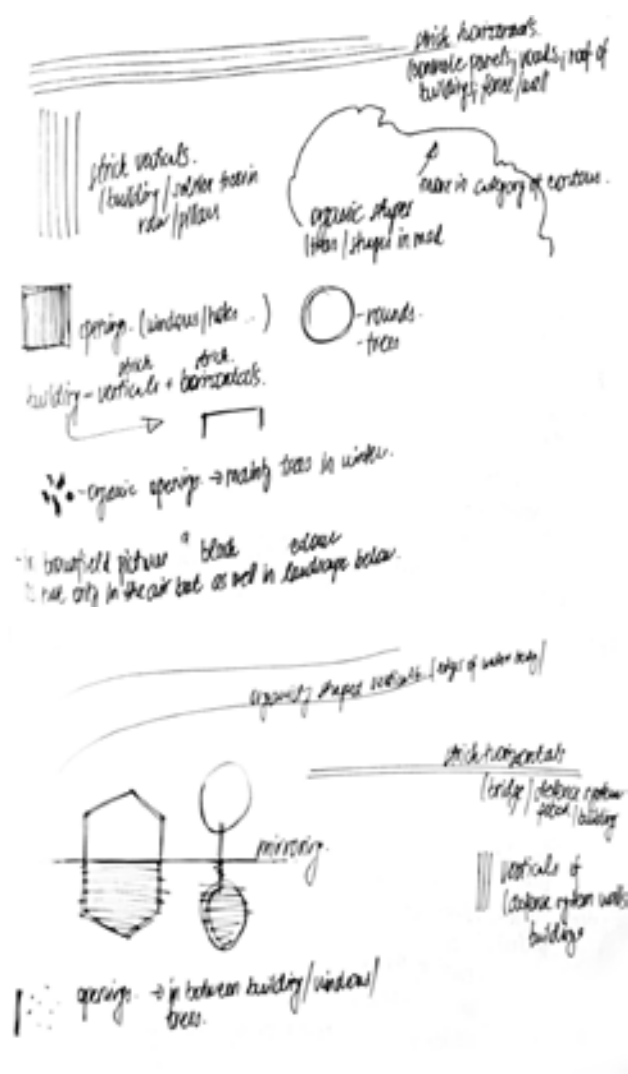 strick horizontals.
panels, roads, roof of
buildings, fence/wall
strick verticals.
(building / trees in
row/pillars
more in category of contour.
organic shapes
trees / shapes in
openings (windows/holes ...)
- rounds.
- trees
strick strick
building - verticals + horizontals.
- organic openings → mainly trees in winter.
picture a block
not only in the air but as well in landscape below.
organicly shaped (edges of water body)
strick horizontals
(bridge / defence system
/ building
mirroring.
verticals of
(defence system walls
buildings
openings → in between building/windows/
trees.